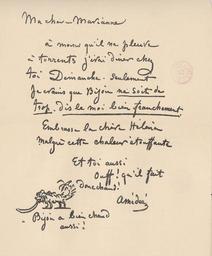 Ma chère Marianne
à moins qu'il ne pleuve
à torrents j'irai dîner chez
toi Dimanche. Seulement
je crains que Bijou ne soit de
trop. dis le moi bien franchement.
Embrasse la chère Héloïse
malgré cette chaleur étouffante
Et toi aussi
Ouff! qu'il fait
donc chaud!
Amédée
Bijou a bien chaud
aussi!